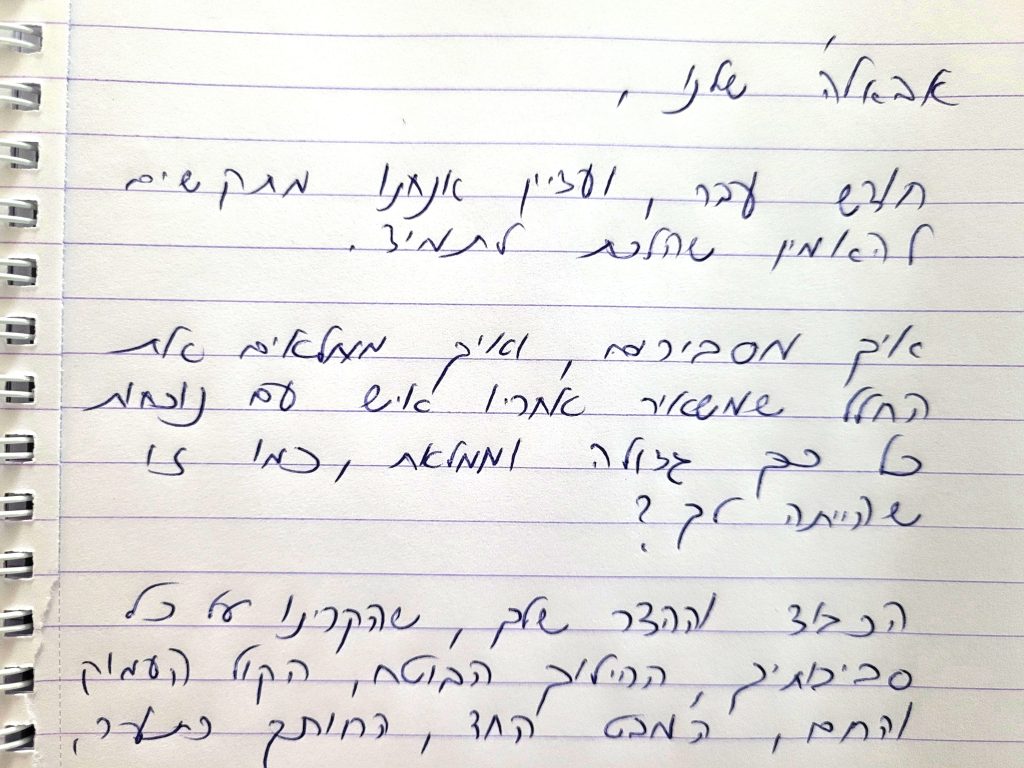 אבאל'ה שלנו,
חודש עבר, ועדיין אנחנו מתקשים
להאמין שהלכת לתמיד.
איך מסבירים, ואיך ממלאים את
החלל שמשאיר אחריו איש עם נוכחות
כל כך גדולה וממלאת, כמו זו
שהייתה לך?
הכבוד וההדר שלך, שהקרינו על כל
סביבותיך, ההילוך הבוטח, הקול העמוק
והחם, המבט החד, החותך כתער,